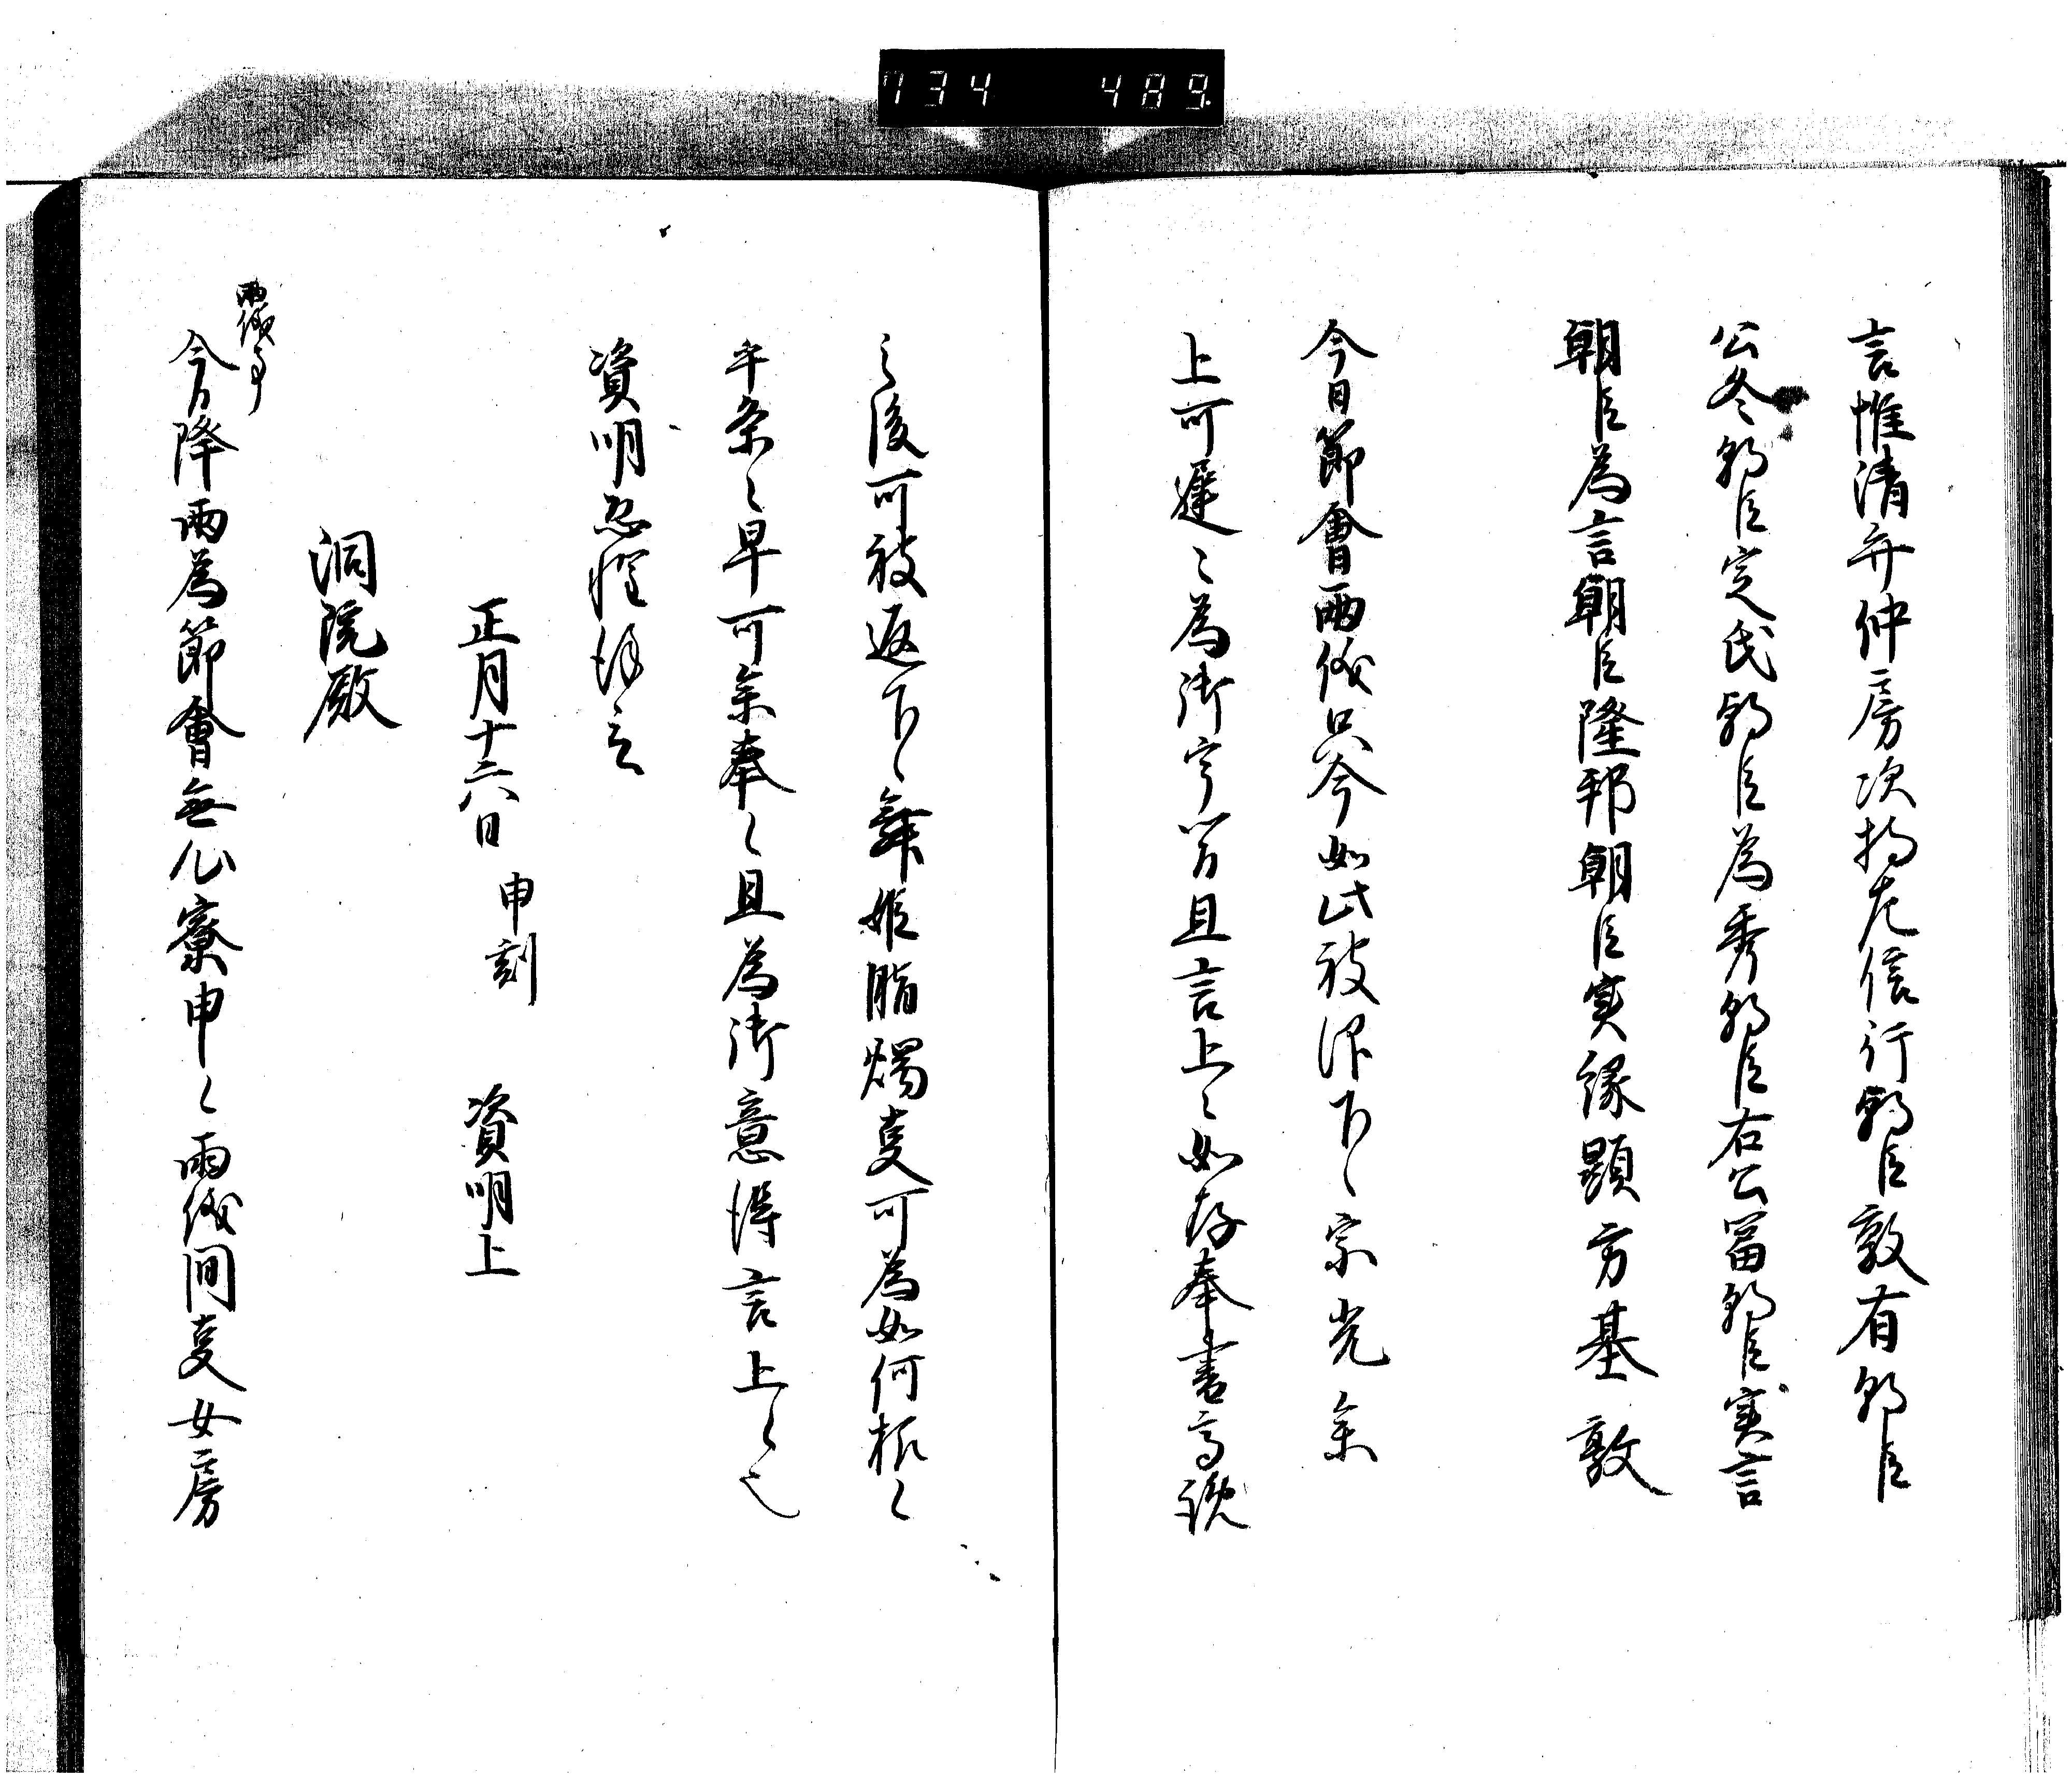 734 489
言惟清弁仲房次将左信行朝臣敦有朝臣
公冬朝臣定氏朝臣為秀朝臣右公冨朝臣実言
朝臣為言朝臣隆邦朝臣実縁顕方基敦
今日節會雨儀只今如此被仰下候宗光参
上可遅々為御穴賢且言上候如存奉書高覧
之後可被返下候舞姫脂燭事可為如何様候
乎条々早可参奉候且為御意得言上候也
資明恐惶謹言
正月十六日 申刻 資明上
洞院殿
雨儀事
今日降雨為節會無心寮申候雨儀間事女房